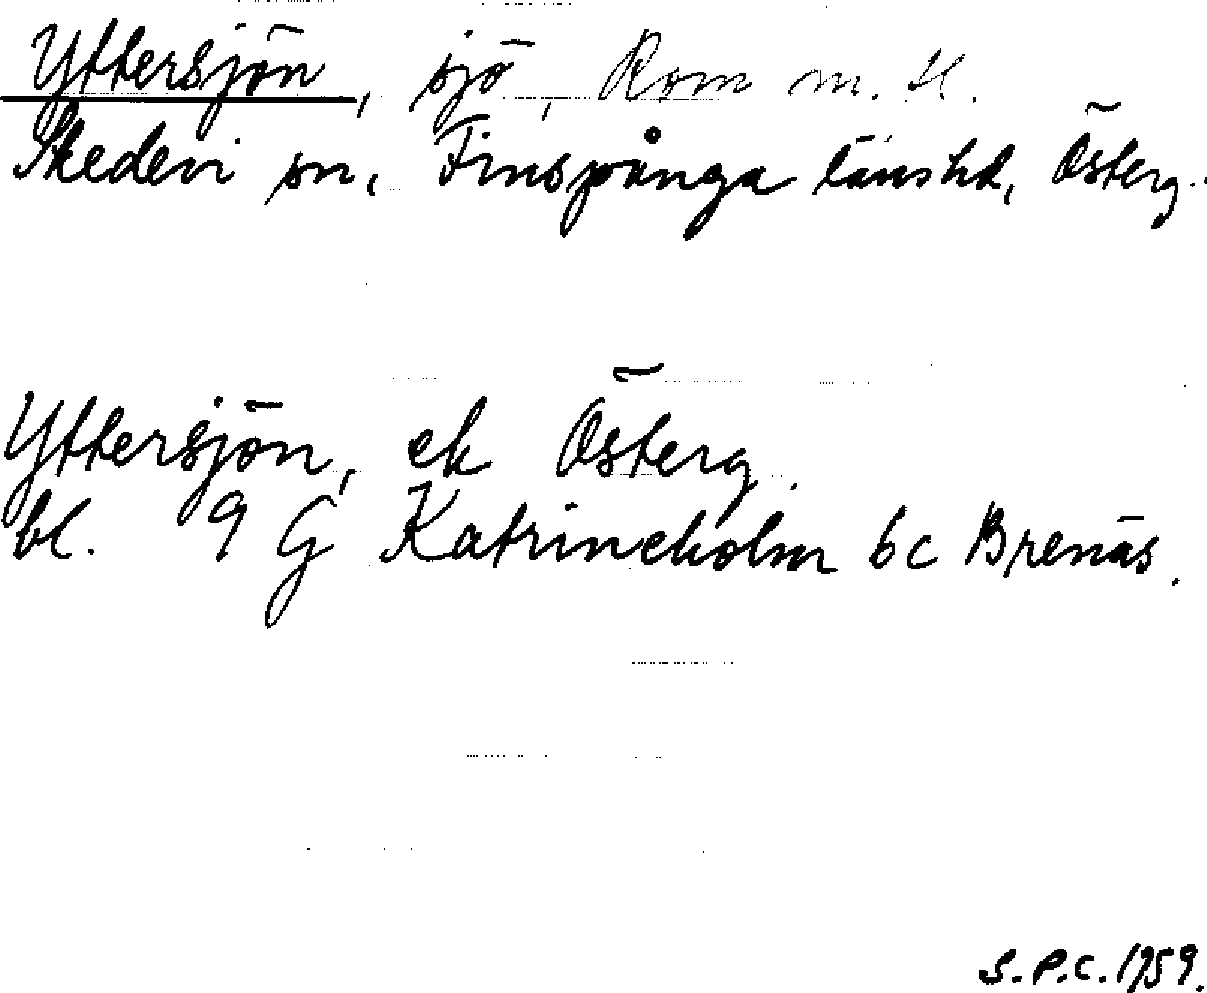 Yttersjön, sjö, Rom m. fl.
Skedevi sn, Finspånga länshd, Österg.
Yttersjön, ek Österg.
bl. 9 G Katrineholm 6c Brenäs.
S.P.C. 1959.